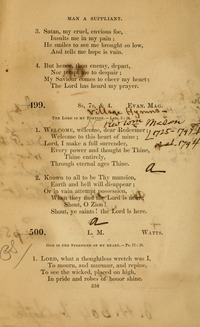 MAN A SUPPLIANT.
3. Satan, my cruel, envious foe,
Insults me in my pain;
He smiles to see me brought so low,
And tells me hope is vain.
4. But hence, thou enemy, depart,
Nor tempt me to despair;
My Saviour comes to cheer my heart;
The Lord has heard my prayer.
499. 8s, 7s, & 4. EVAN. MAG.
Village Hymns
THE LORD IS MY PORTION.
1. WELCOME, welcome, dear Redeemer,
Welcome to this heart of mine;
Lord, I make a full surrender,
Every power and thought be Thine,
Thine entirely,
Through eternal ages Thine.
2. Known to all to be Thy mansion,
Earth and hell will disappear;
Or in vain attempt possession,
When they find the Lord is near;
Shout, O Zion!
Shout, ye saints! the Lord is here.
500. L. M. WATTS.
GOD IS THE STRENGTH OF MY HEART.
1. LORD, what a thoughtless wretch was I,
To mourn, and murmur, and repine,
To see the wicked, placed on high,
In pride and robes of honor shine.